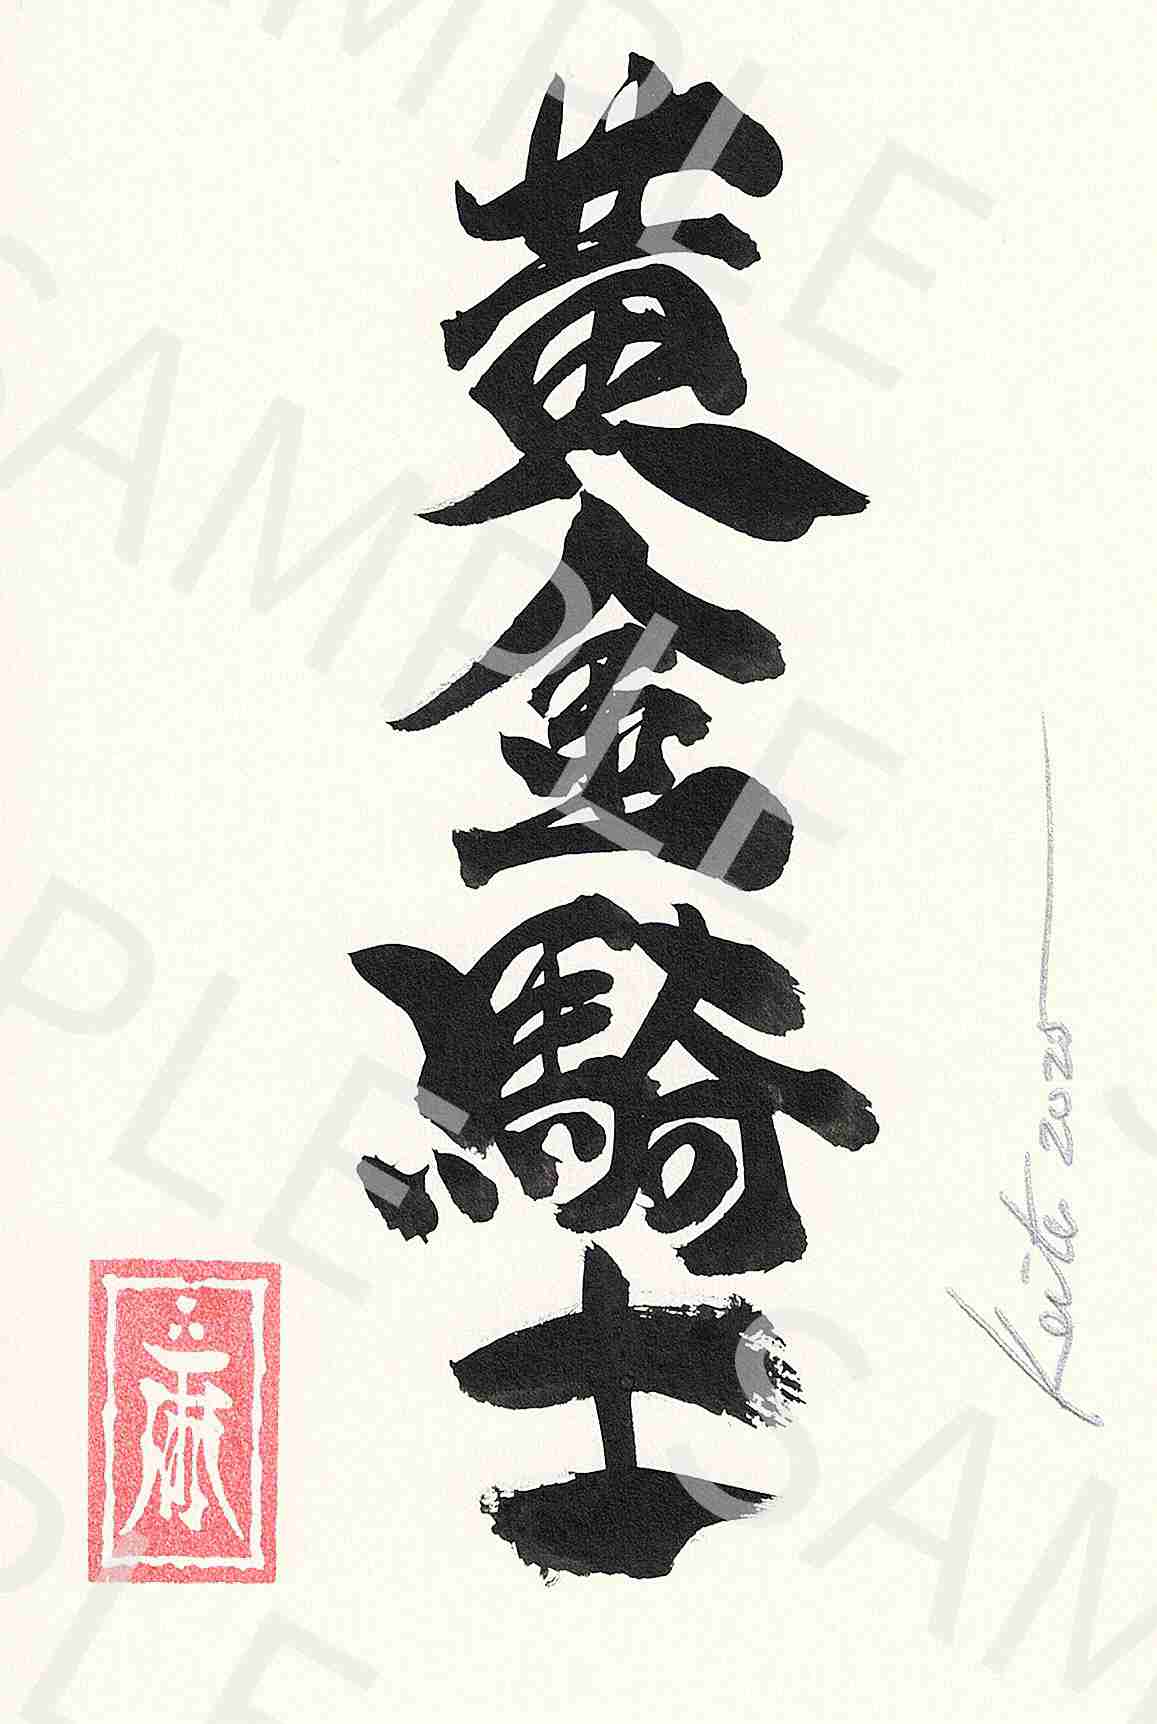 黄金騎士
Keita 2020
SAMPLE
SAMPLE
SAMPLE
SAMPLE